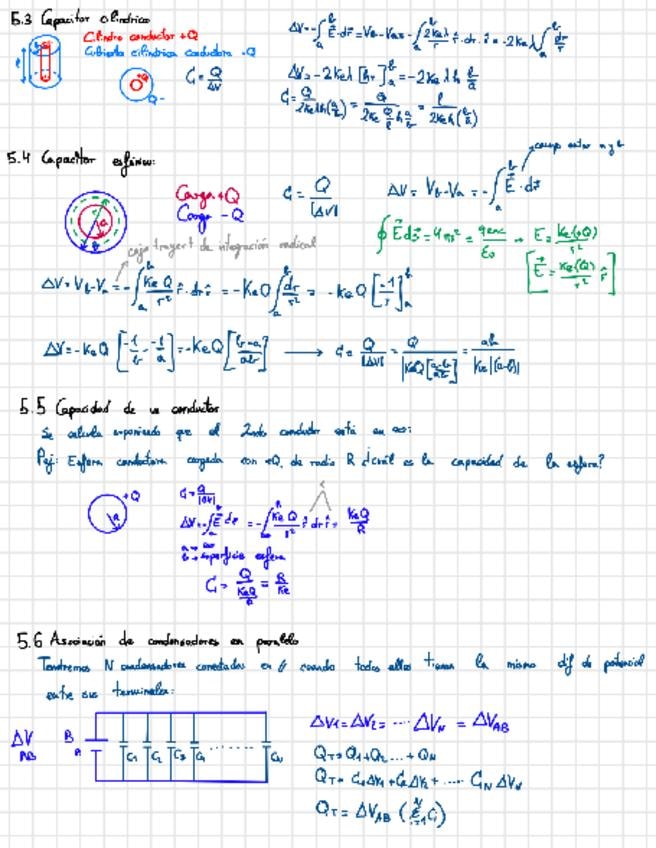 5.3 Capacitor cilíndrico
Cilindro conductor +Q
Cubierta cilíndrica conductora -Q
C = Q/ΔV
ΔV = -∫_a^b E⃗·dr⃗ = V_b - V_a = -∫_a^b 2Keλ/r r̂·dr·r̂ = -2Keλ∫_a^b dr/r
ΔV = -2Keλ [ln r]_a^b = -2Keλ ln b/a
C = Q/(2Keλ ln(b/a)) = Q/(2Ke Q/l ln b/a) = l/(2Ke ln(b/a))
5.4 Capacitor esférico:
Carga +Q
Carga -Q
C = Q/|ΔV|
ΔV = V_b - V_a = -∫_a^b E⃗·dr⃗
campo entre a y b
∮E⃗ds⃗ = 4πr² = q enc/ε₀ → E = Ke(Q)/r²
[E⃗ = Ke(Q)/r² r̂]
cojo trayect de integración radical
ΔV = V_b - V_a = -∫_a^b KeQ/r² r̂·dr r̂ = -KeQ∫_a^b dr/r² = -KeQ[-1/r]_a^b
ΔV = -KeQ [-1/b - -1/a] = -KeQ [b-a/ab] → C = Q/|ΔV| = Q/|KeQ[a-b/ab]| = ab/Ke|(a-b)|
5.5 Capacidad de un conductor
Se calcula suponiendo que el 2ndo conductor está en ∞:
P.ej: Esfera conductora cargada con +Q, de radio R ¿cuál es la capacidad de la esfera?
+Q
R
C = Q/|ΔV|
ΔV = -∫_a^b E⃗ dr⃗ = -∫_∞^R KeQ/r² r̂ dr r̂ = KeQ/R
a → ∞
b → superficie esfera
C = Q/(KeQ/R) = R/Ke
5.6 Asociación de condensadores en paralelo
Tendremos N condensadores conectados en // cuando todos ellos tienen la misma dif de potencial
entre sus terminales:
ΔV AB
B
A
C₁ C₂ C₃ C₄ ........ C_N
ΔV₁ = ΔV₂ = ···· ΔV_N = ΔV_AB
Q_T = Q₁ + Q₂ ... + Q_N
Q_T = C₁ΔV₁ + C₂ΔV₂ + ..... C_N ΔV_N
Q_T = ΔV_AB (Σ_{i=1}^N C_i)